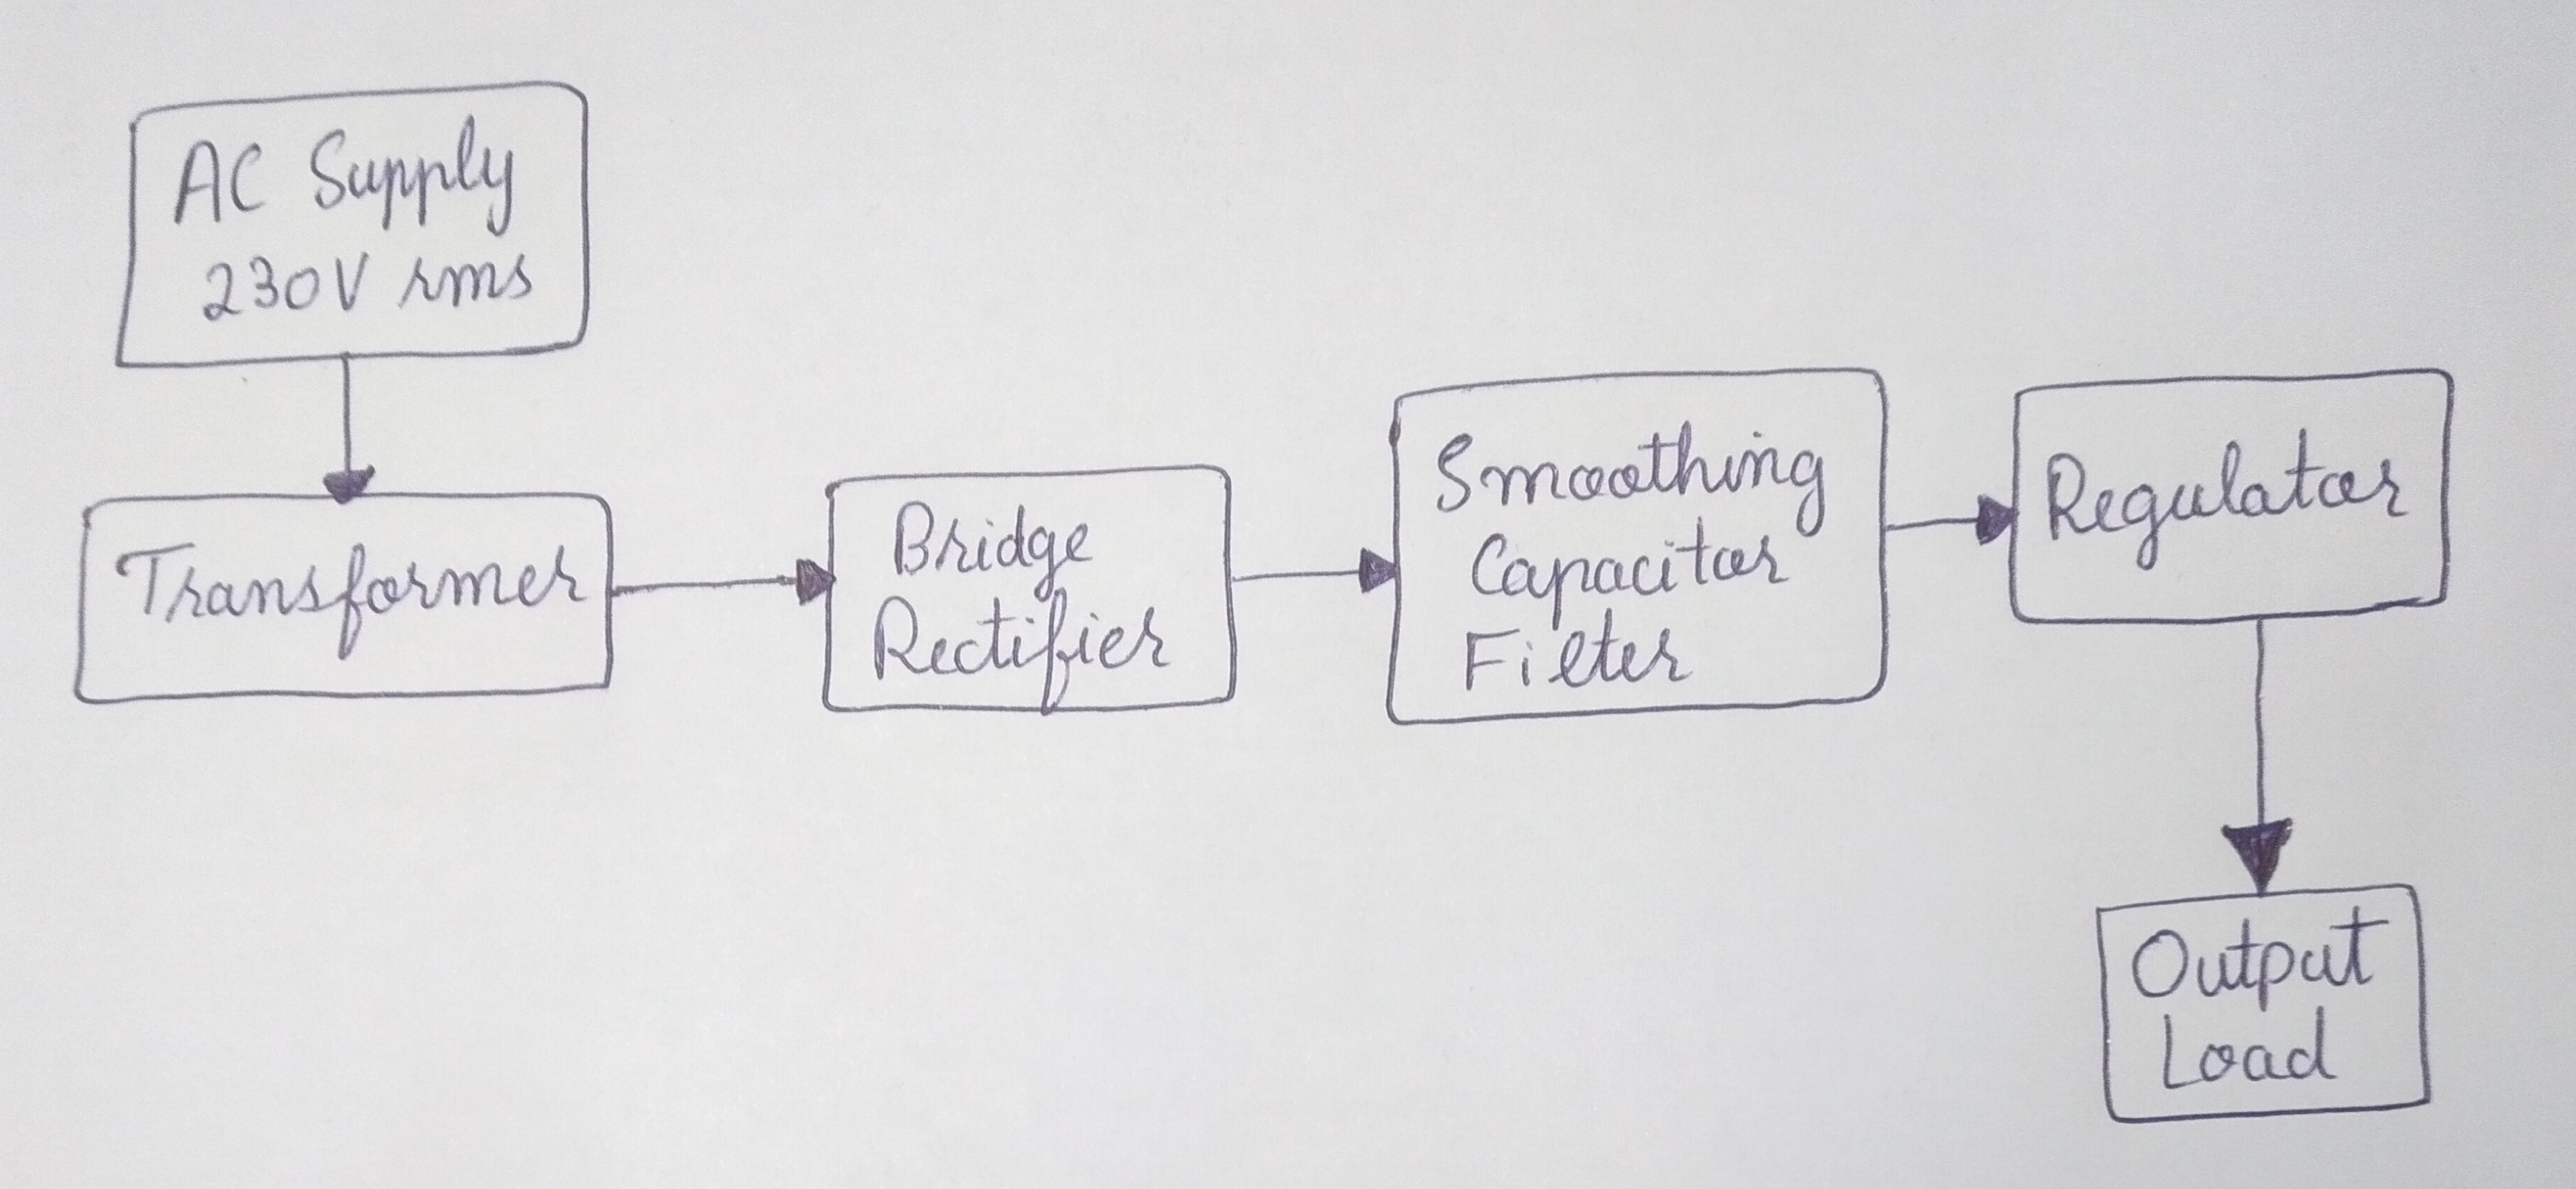 AC Supply
230V rms
Transformer
Bridge
Rectifier
Smoothing
Capacitor
Filter
Regulator
Output
Load